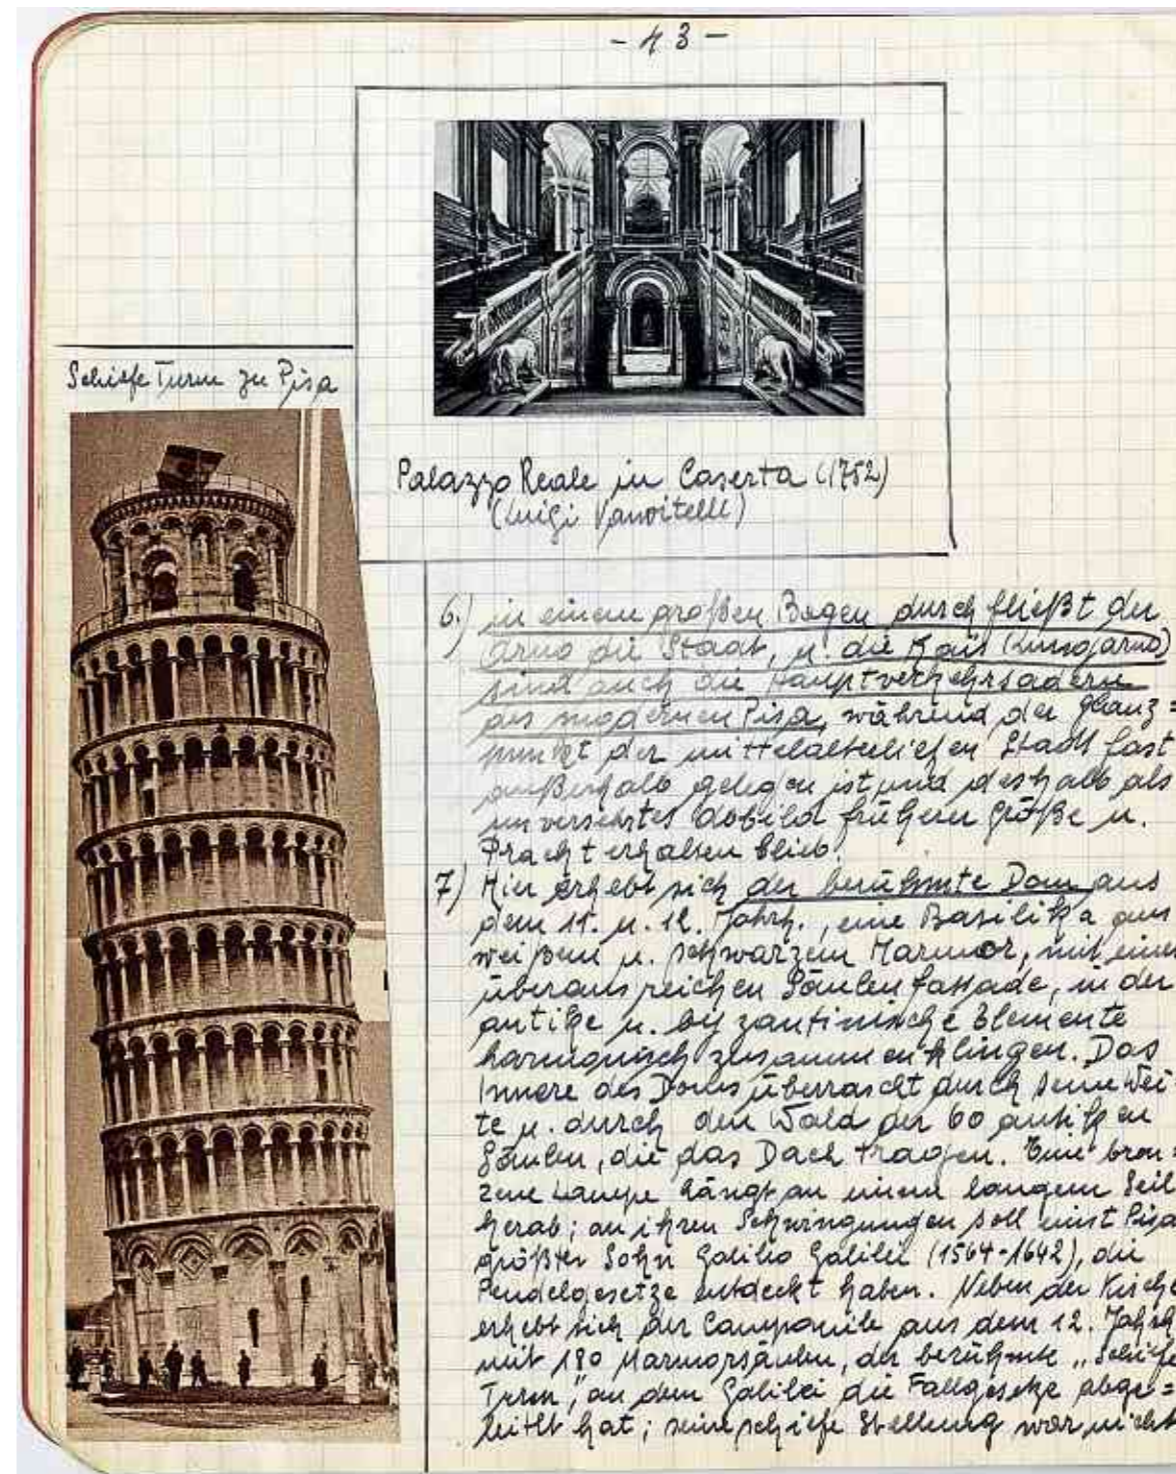 - 43 -
Schiefe Turm zu Pisa
Palazzo Reale in Caserta (1752)
(Luigi Vanvitelli)
6.) in einem großen Bogen durchfließt der
Arno die Stadt, u. die Kais (Lungarno)
sind auch die Hauptverkehrsadern
des modernen Pisa, während der Glanz=
punkt der mittelalterlichen Stadt fast
außerhalb gelegen ist und deshalb als
unversehrtes Abbild früherer Größe u.
Pracht erhalten blieb.
7) Hier erhebt sich der berühmte Dom aus
dem 11. u. 12. Jahrh., eine Basilika aus
weißem u. schwarzem Marmor, mit einer
überaus reichen Säulenfassade, in der
antike u. byzantinische Elemente
harmonisch zusammenklingen. Das
Innere des Doms überrascht durch seine Wei
te u. durch den Wald der 60 antiken
Säulen, die das Dach tragen. Eine bron=
zene Lampe hängt an einem langem Seil
herab; an ihren Schwingungen soll einst Pisa
größter Sohn Galileo Galilei (1564-1642), die
Pendelgesetze entdeckt haben. Neben der Kirche
erhebt sich der Campanile aus dem 12. Jahrh
mit 180 Marmorsäulen, der berühmte „Schiefe
Turm", an dem Galilei die Fallgesetze abge=
leitet hat; seine schiefe Stellung war nicht